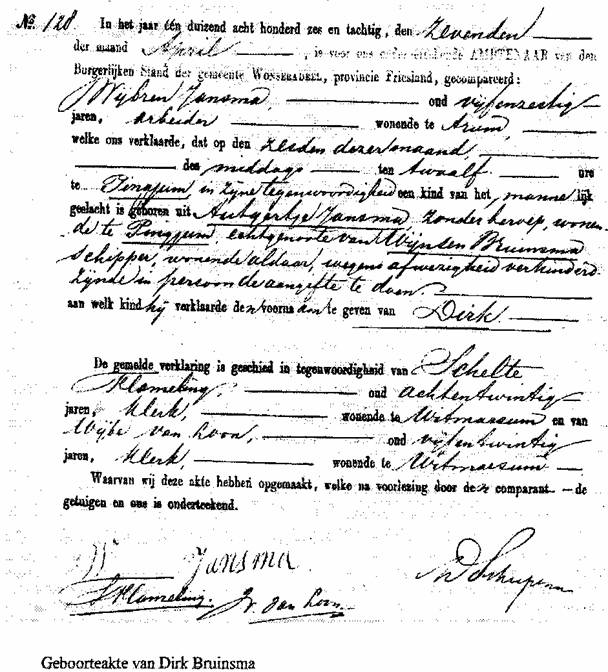 No. 128.
In het jaar één duizend acht honderd zes en tachtig, den zevenden
der maand April, is voor ons ondergeteekende AMBTENAAR van den
Burgerlijken Stand der gemeente WONSERADEEL, provincie Friesland, gecompareerd:
Wybren Jansma, oud vijfenzestig
jaren, arbeider wonende te Arum,
welke ons verklaarde, dat op den zesden dezer maand
des middags ten twaalf ure
te Pingjum, in zijne tegenwoordigheid een kind van het mannelijk
geslacht is geboren uit Jansma, zonder beroep, wonen-
de te Pingjum, echtgenoote van Wijnsen Bruinsma
schipper, wonende aldaar, wegens afwezigheid verhinderd
zijnde in persoon de aangifte te doen
aan welk kind hij verklaarde den voornaam te geven van Dirk.
De gemelde verklaring is geschied in tegenwoordigheid van Schelte
Klameling, oud achtentwintig
jaren, klerk, wonende te Witmarsum en van
Wijbe van Loon, oud vijfentwintig
jaren, klerk, wonende te Witmarsum
Waarvan wij deze akte hebben opgemaakt, welke na voorlezing door den comparant de
getuigen en ons is onderteekend.
W Jansma
S Klameling. W. van Loon.
Geboorteakte van Dirk Bruinsma